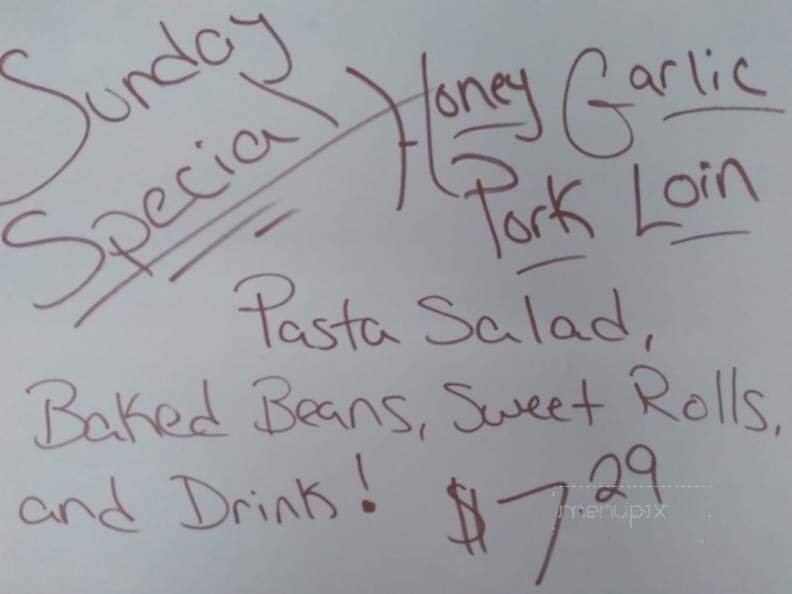 Sunday
Special
Honey Garlic
Pork Loin
Pasta Salad,
Baked Beans, Sweet Rolls,
and Drink! $7.29
menupix